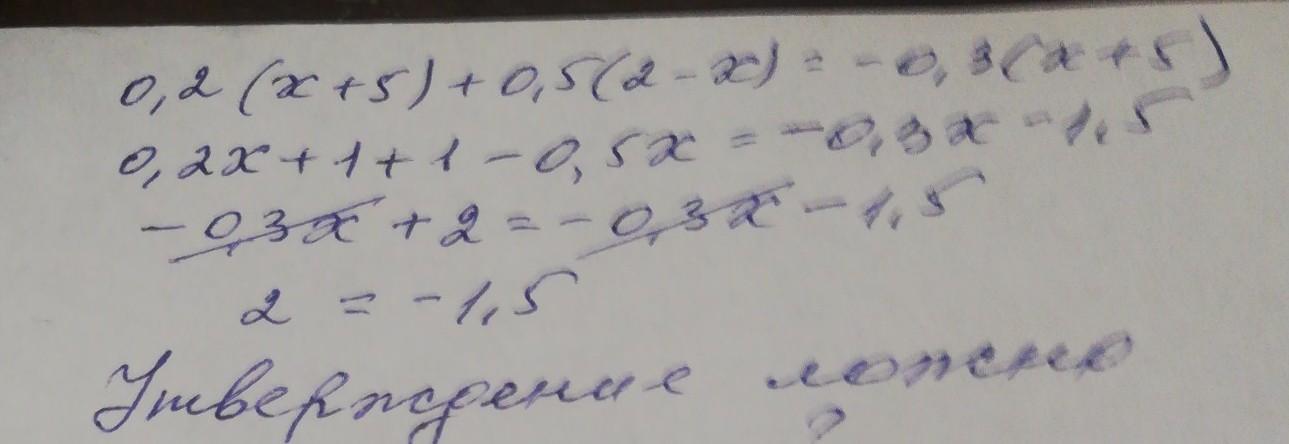 0,2(x+5)+0,5(2-x)=-0,3(x+5)
0,2x+1+1-0,5x=-0,3x-1,5
-0,3x+2=-0,3x-1,5
2=-1,5
Утверждение ложно
?